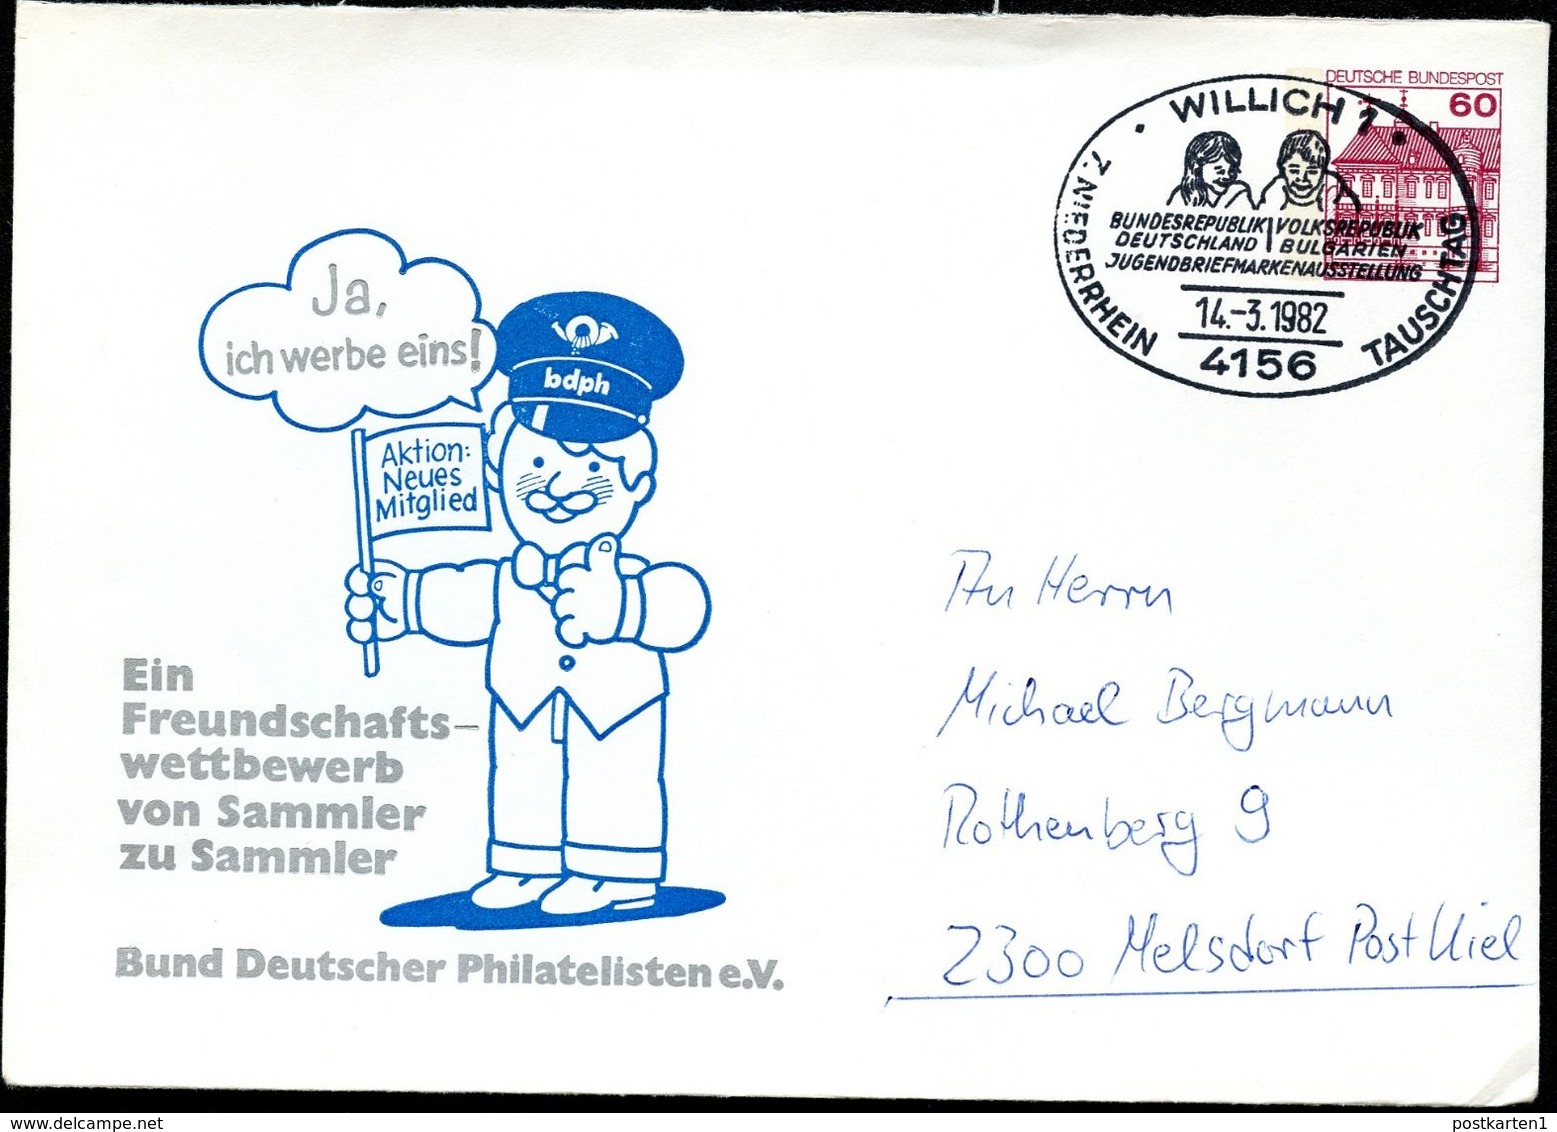 DEUTSCHE BUNDESPOST
60
· WILLICH 1 ·
7. NIEDERRHEIN TAUSCHTAG
BUNDESREPUBLIK VOLKSREPUBLIK
DEUTSCHLAND BULGARIEN
JUGENDBRIEFMARKENAUSSTELLUNG
14.-3.1982
4156
Ja,
ich werbe eins!
bdph
Aktion:
Neues
Mitglied
Ein
Freundschafts-
wettbewerb
von Sammler
zu Sammler
Bund Deutscher Philatelisten e.V.
An Herrn
Michael Bergmann
Rothenberg 9
2300 Melsdorf Post Kiel
postkarten1